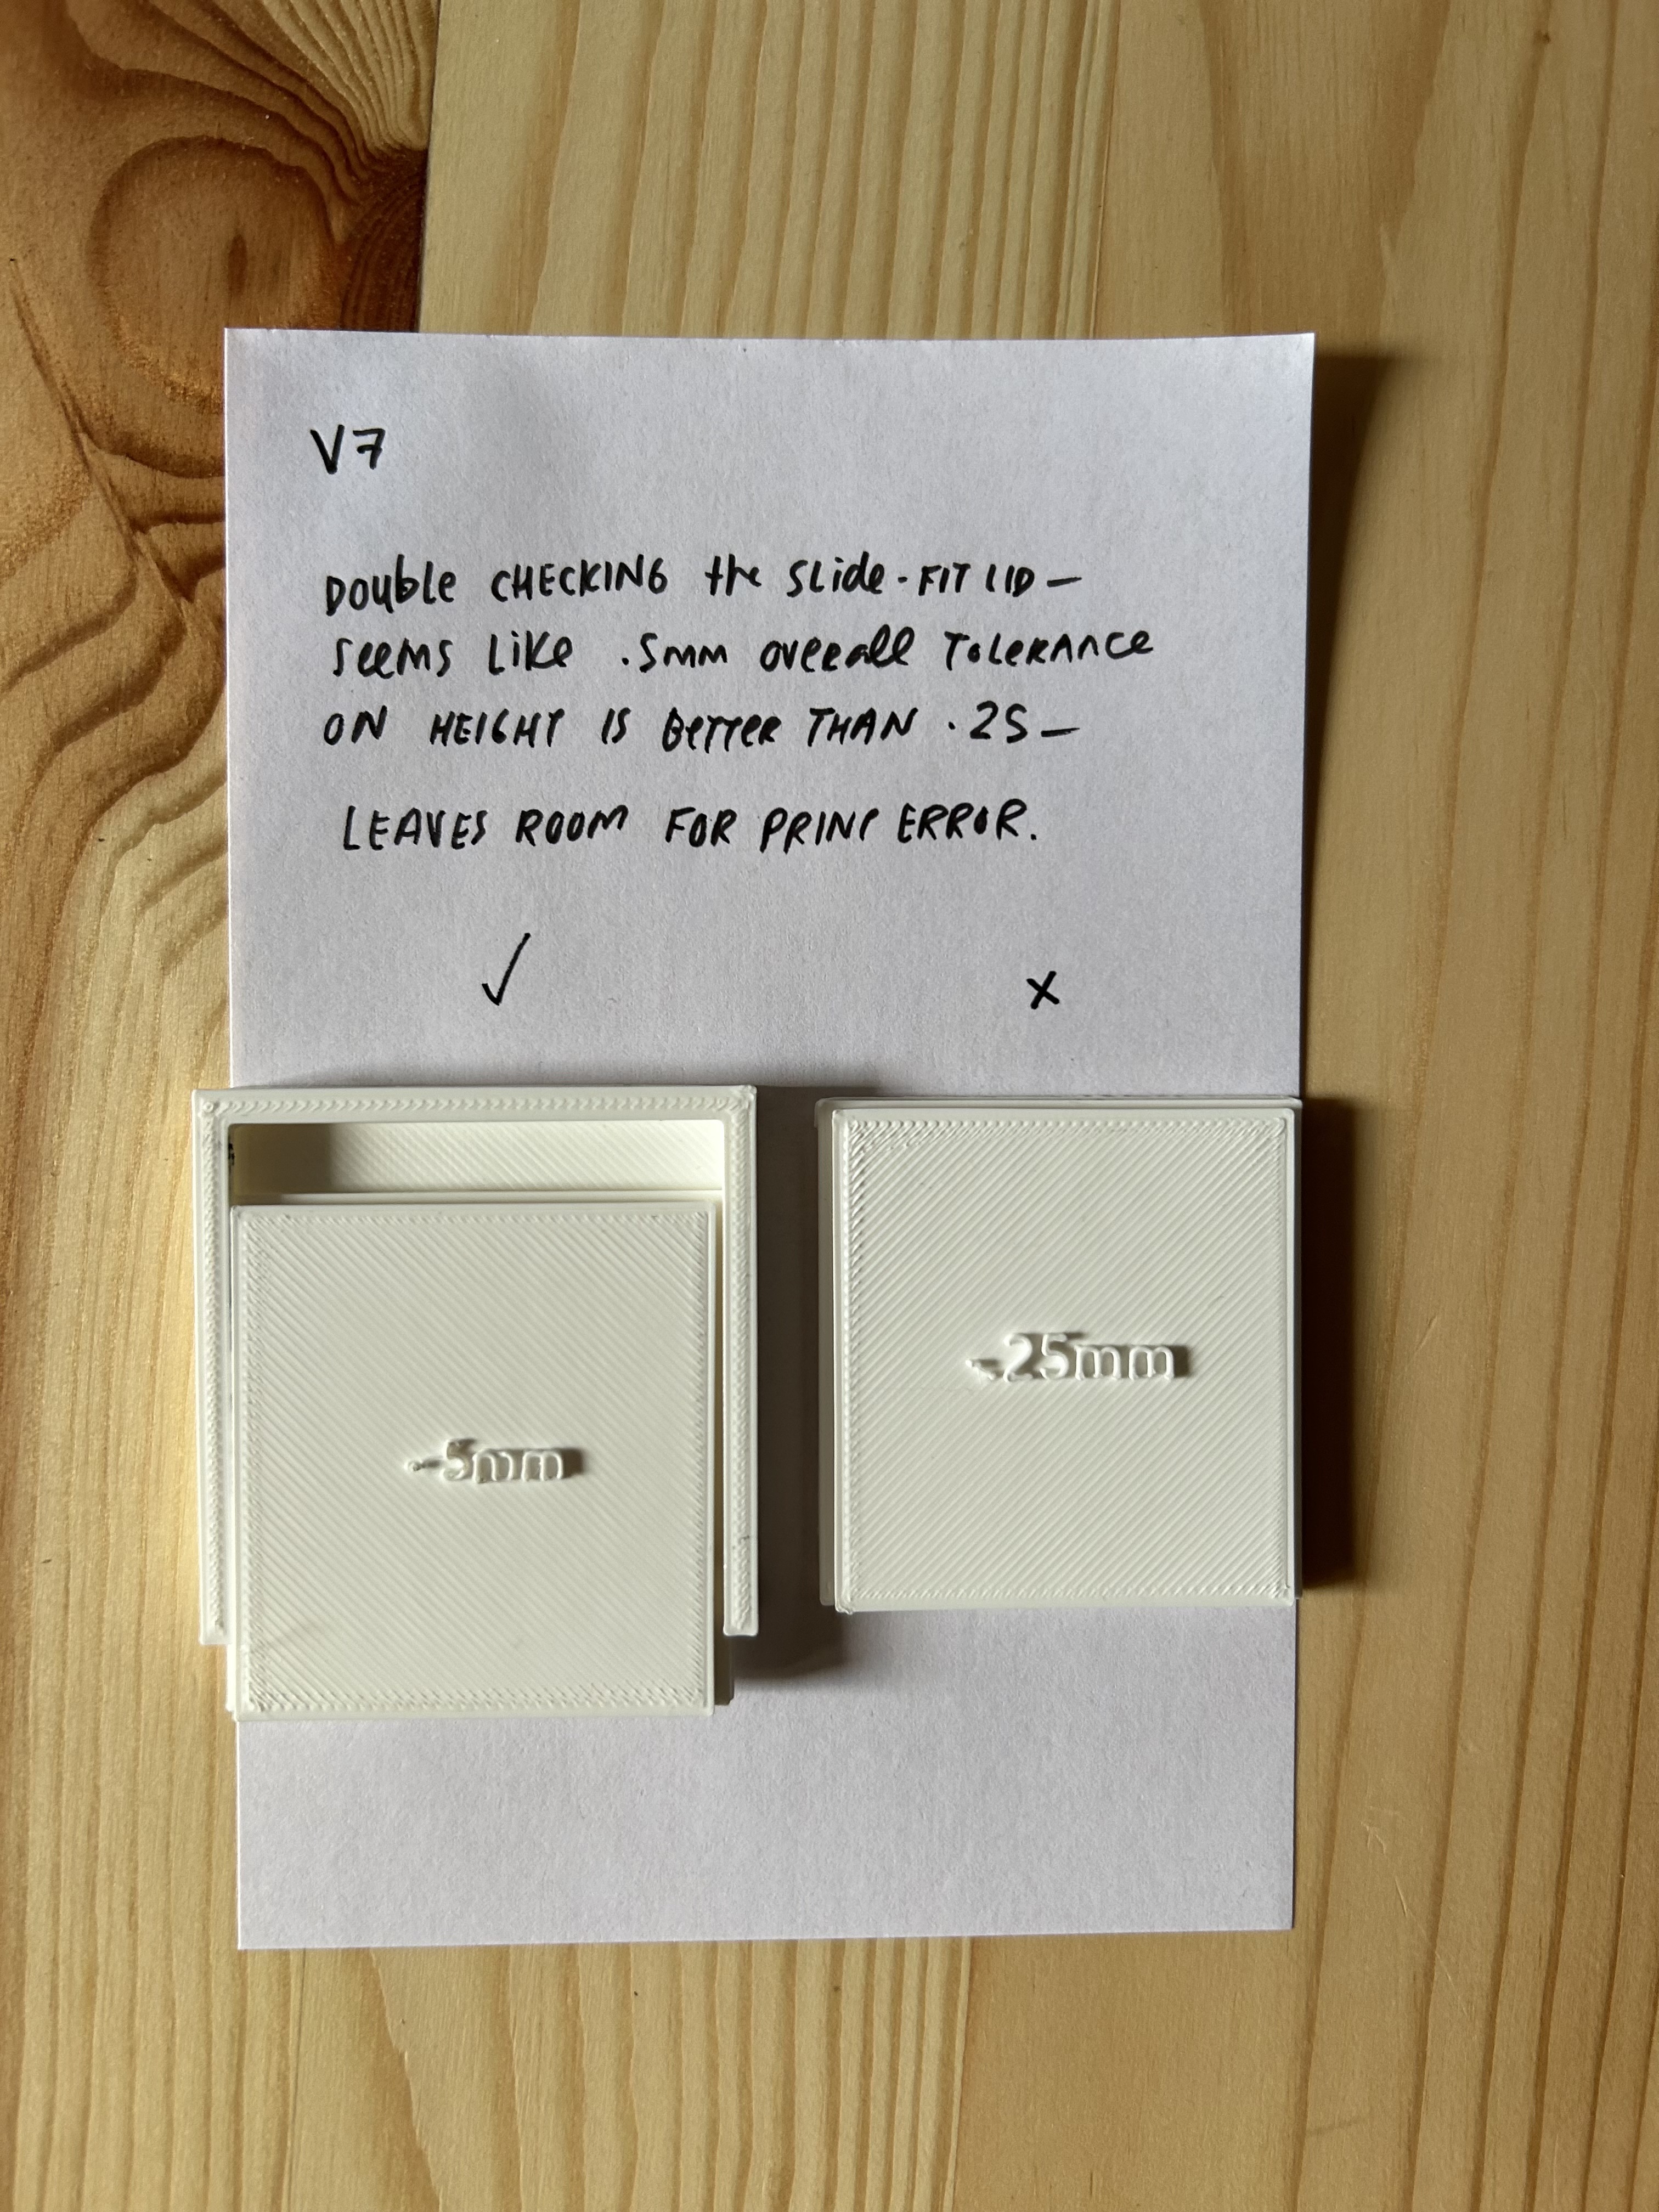 V7
DOUblE CHECKING the SLide-FIT LID —
Seems Like .5mm overall TOLERANCE
ON HEIGHT IS BETTER THAN .25 —
LEAVES ROOM FOR PRINT ERROR.
✓ x
-.25mm
-.5mm